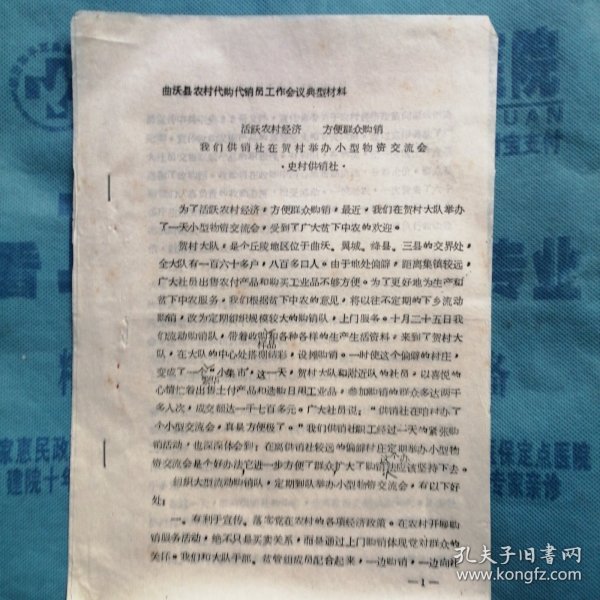 曲沃县农村代购代销员工作会议典型材料
活跃农村经济 方便群众购销
我们供销社在贺村举办小型物资交流会
·史村供销社·
为了活跃农村经济，方便群众购销，最近，我们在贺村大队举办
了一天小型物资交流会，受到了广大贫下中农的欢迎。
贺村大队，是个丘陵地区位于曲沃、翼城、绛县、三县的交界处，
全大队有一百六十多户，八百多口人。由于地处偏僻，距离集镇较远，
广大社员出售农付产品和购买工业品都不方便。为了更好地为生产和
贫下中农服务，我们根据贫下中农的意见，将以往不定期的下乡流动
购销，改为定期组织规模较大的购销队，上门服务。十月二十五日我
们流动购销队，带着政明和各种各样的生产生活资料，来到了贺村大
样品
队，在大队的中心处搭棚结彩，设摊购销。一时使这个偏僻的村庄，
变成了一个"小集市"，这一天，贺村大队和附近队的社员，以喜悦的
心情忙着出售土付产品和选购日用工业品，参加购销的群众多达两千
多人次，成交额达一千七百多元。广大社员说："供销社在咱村办了
个小型交流会，真是方便极了。"我们供销社职工经过一天的紧张购
销活动，也深深体会到：在离供销社较远的偏僻村庄定期举办小型物
资交流会是个好办法它进一步方便了群众扩大了购销应该坚持下去。
组织大型流动购销队，定期到队举办小型物资交流会，有以下好
处：
一、有利于宣传、落实党在农村的各项经济政策。在农村开展购
销服务活动，绝不只是买卖关系，而是通过上门购销体现党对群众的
关怀。我们和大队干部、贫管组成员配合起来，一边购销，一边向社
—1—
医院
YUAN
宝支付
看
专业
备
家惠民政
建院十年
医保定点医院
专家亲诊
孔夫子旧书网
www.kongfz.com